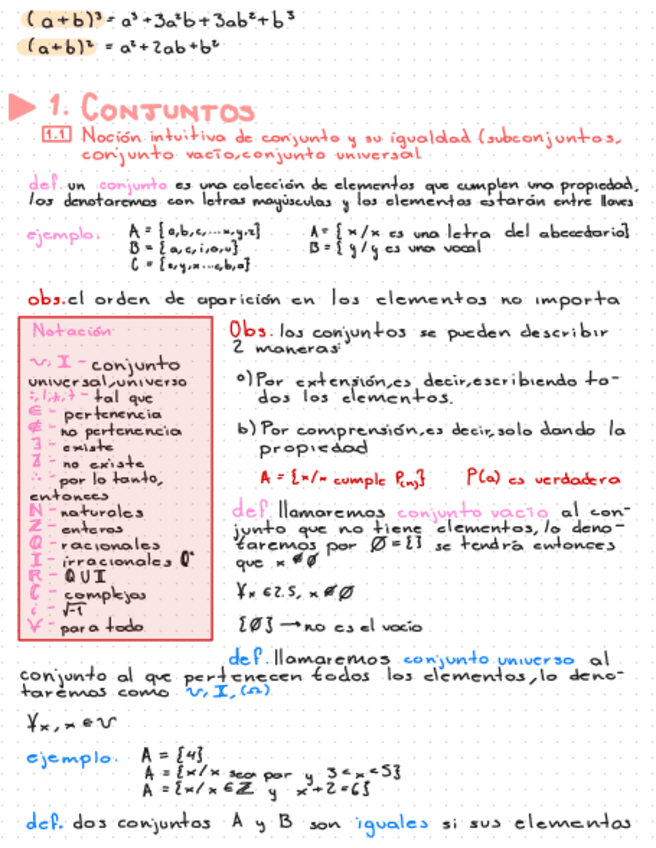 (a+b)³ = a³+3a²b+3ab²+b³
(a+b)² = a²+2ab+b²
1. CONJUNTOS
1.1 Noción intuitiva de conjunto y su igualdad (subconjuntos,
conjunto vacío, conjunto universal
def. un conjunto es una colección de elementos que cumplen una propiedad,
los denotaremos con letras mayúsculas y los elementos estarán entre llaves
ejemplo. A = {a,b,c,...x,y,z} A = {x/x es una letra del abecedario}
B = {a,e,i,o,u} B = {y/y es una vocal
C = {z,y,x...c,b,a}
obs. el orden de aparición en los elementos no importa
Notación
U, I - conjunto
universal, universo
tal que
∈ - pertenencia
∉ - no pertenencia
∃ - existe
∄ - no existe
∴ - por lo tanto,
entonces
N - naturales
Z - enteros
Q - racionales
I - irracionales Q'
R - Q U I
C - complejos
i - √-1
∀ - para todo
Obs. los conjuntos se pueden describir
2 maneras:
a) Por extensión, es decir, escribiendo to-
dos los elementos.
b) Por comprensión, es decir, solo dando la
propiedad
A = {x/x cumple P(x)} P(a) es verdadera
def. llamaremos conjunto vacío al con-
junto que no tiene elementos, lo deno-
taremos por Ø = {} se tendrá entonces
que x ∉ Ø
∀x ∈ , x ∉ Ø
{Ø} → no es el vacío
def. llamaremos conjunto universo al
conjunto al que pertenecen todos los elementos, lo deno-
taremos como U, I, (Ω)
∀x, x ∈ U
ejemplo. A = {4}
A = {x/x sea par y 3<x<5}
A = {x/x ∈ Z y x+2=6}
def. dos conjuntos A y B son iguales si sus elementos